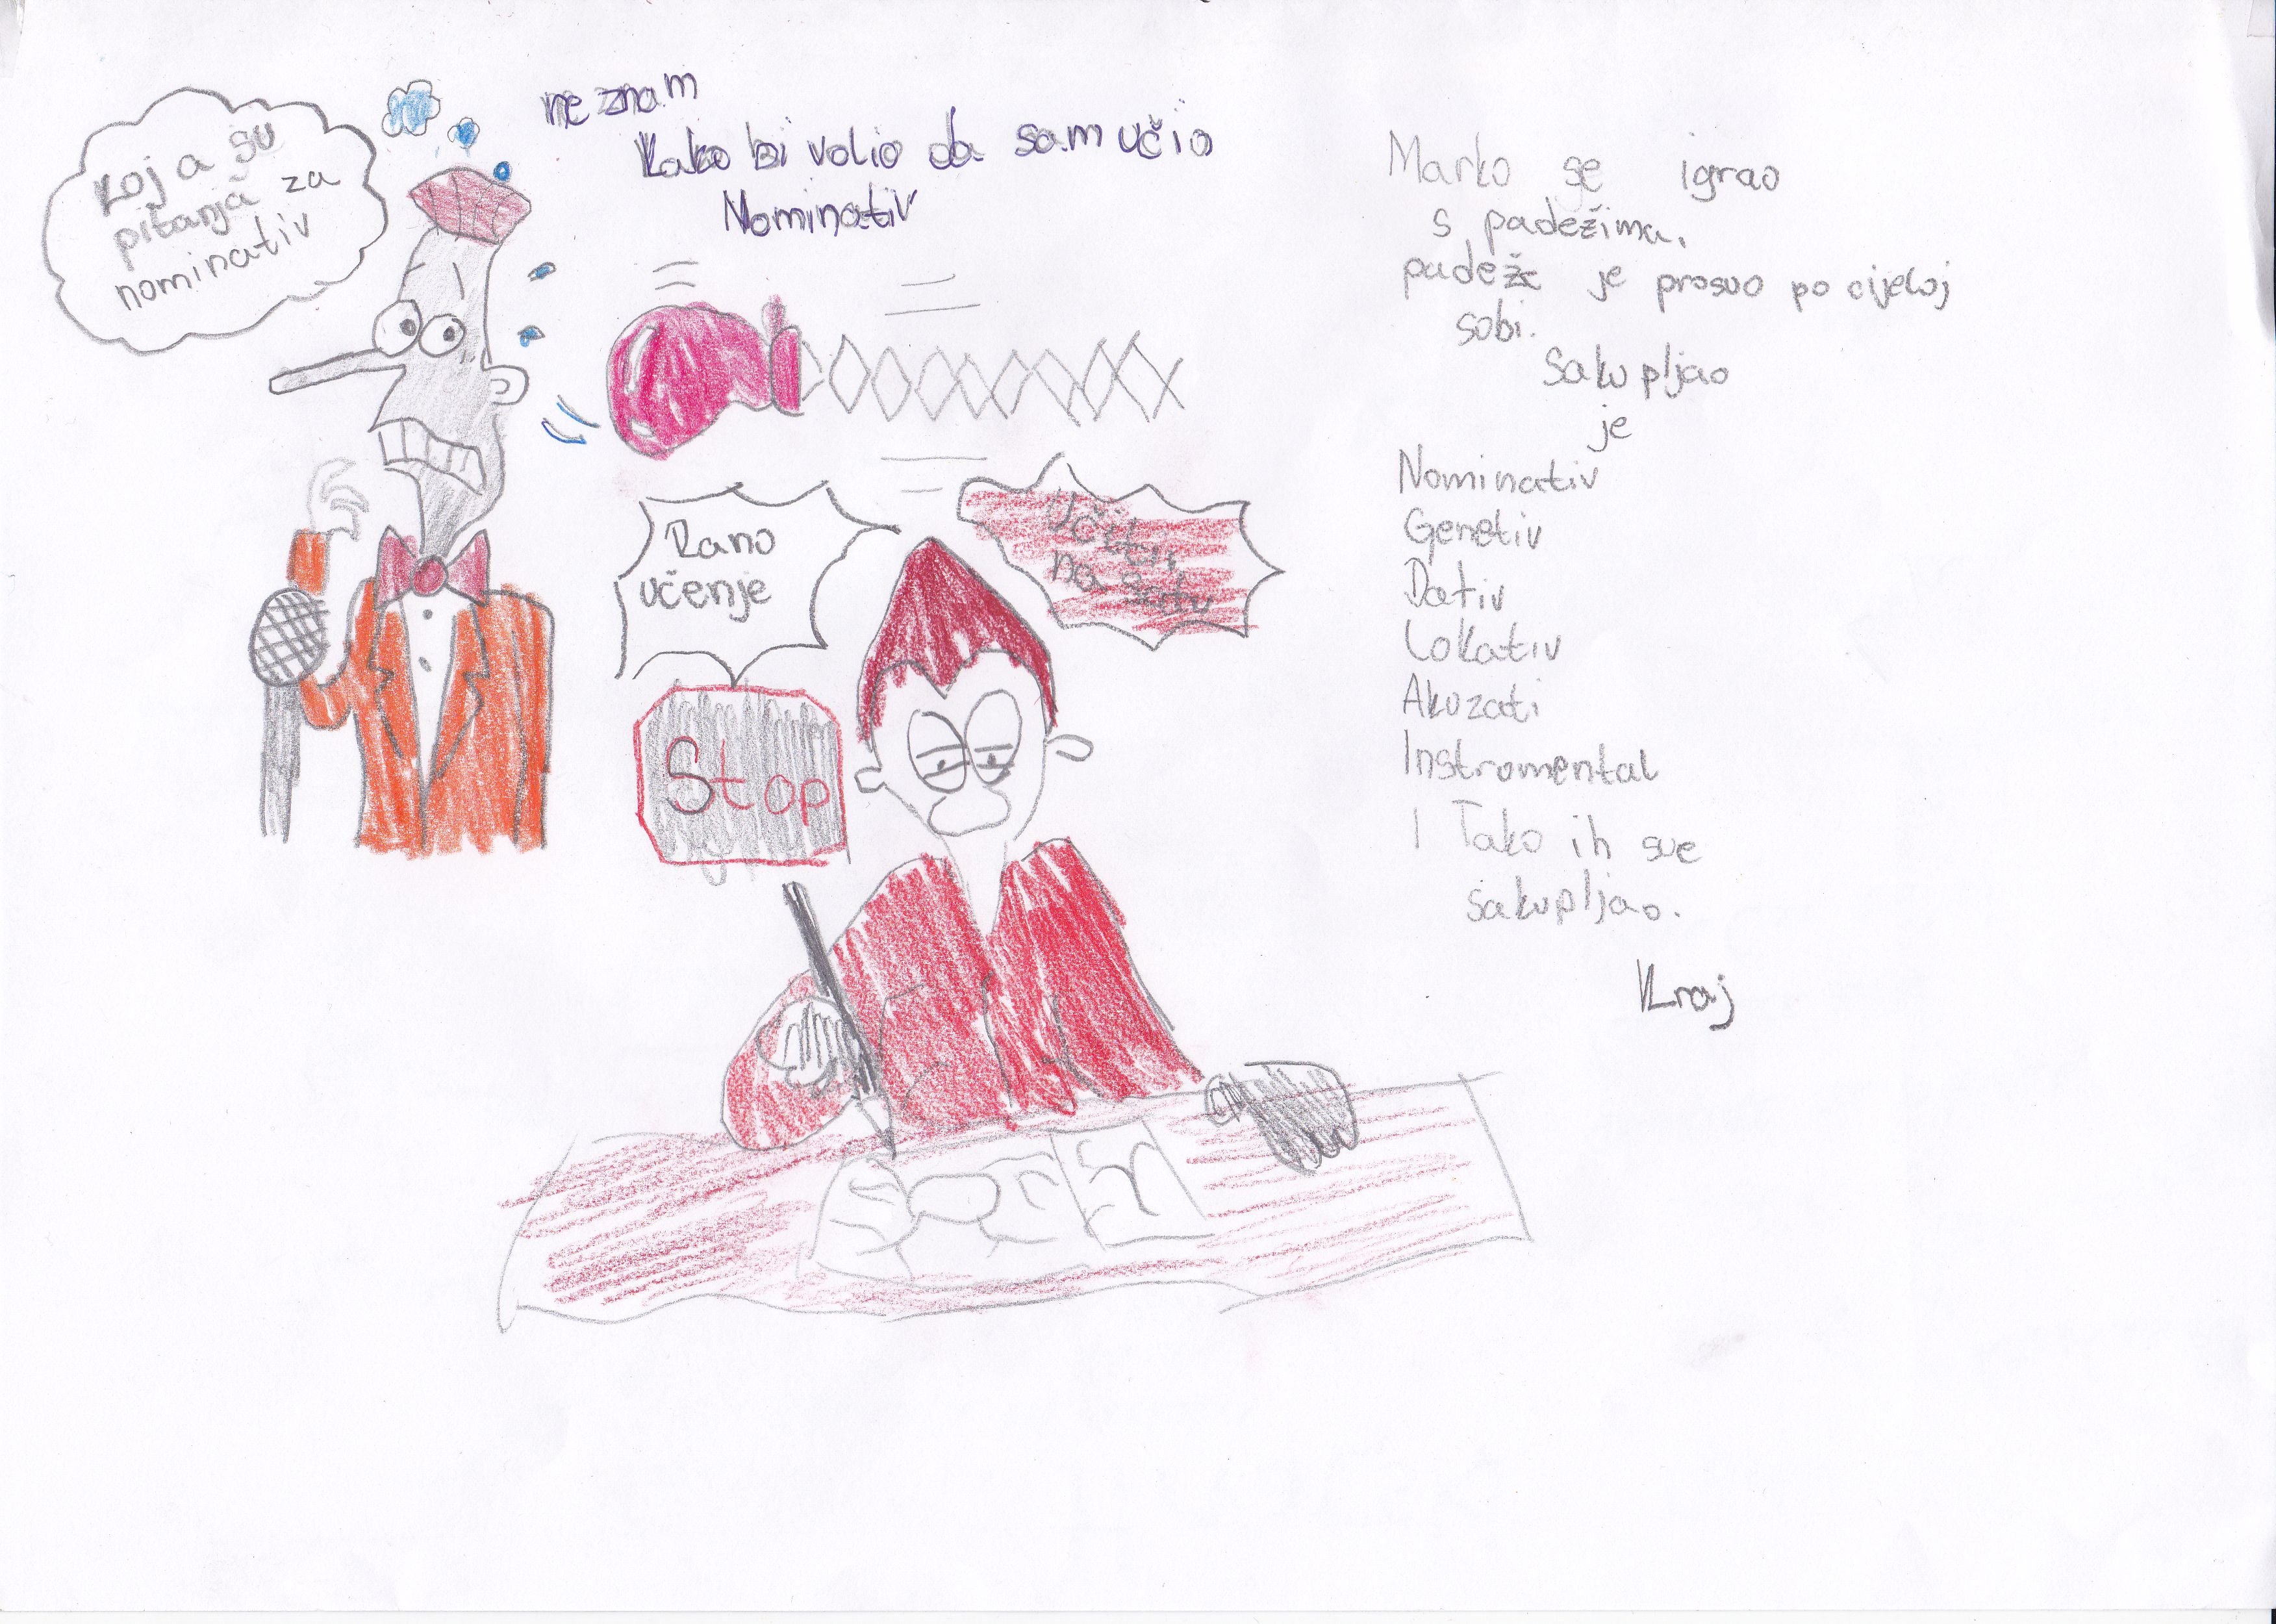 Koja su
pitanja za
nominativ
ne znam
Kako bi volio da sam učio
Nominativ
Rano
učenje
na satu
Stop
Marko se igrao
s padežima.
padeže je prosuo po cijeloj
sobi.
Sakupljao
je
Nominativ
Genetiv
Dativ
Lokativ
Akuzati
Instromental
I Tako ih sve
sakupljao.
Kraj